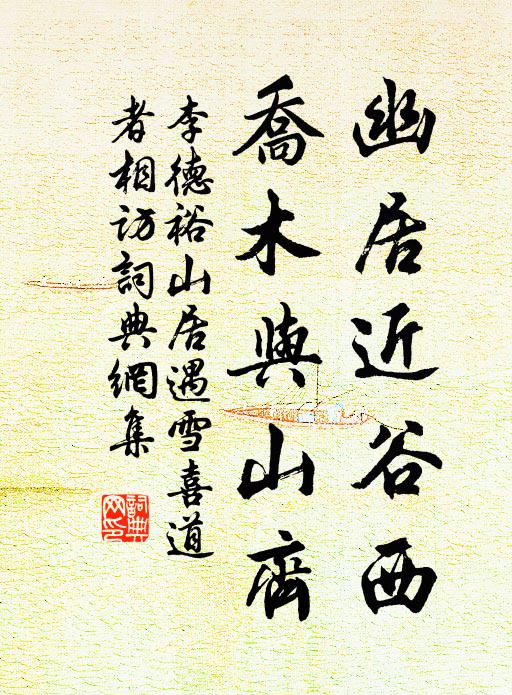 幽居近谷西
喬木與山齊
李德裕山居遇雪喜道
者相訪詞典網集
詞典
网印